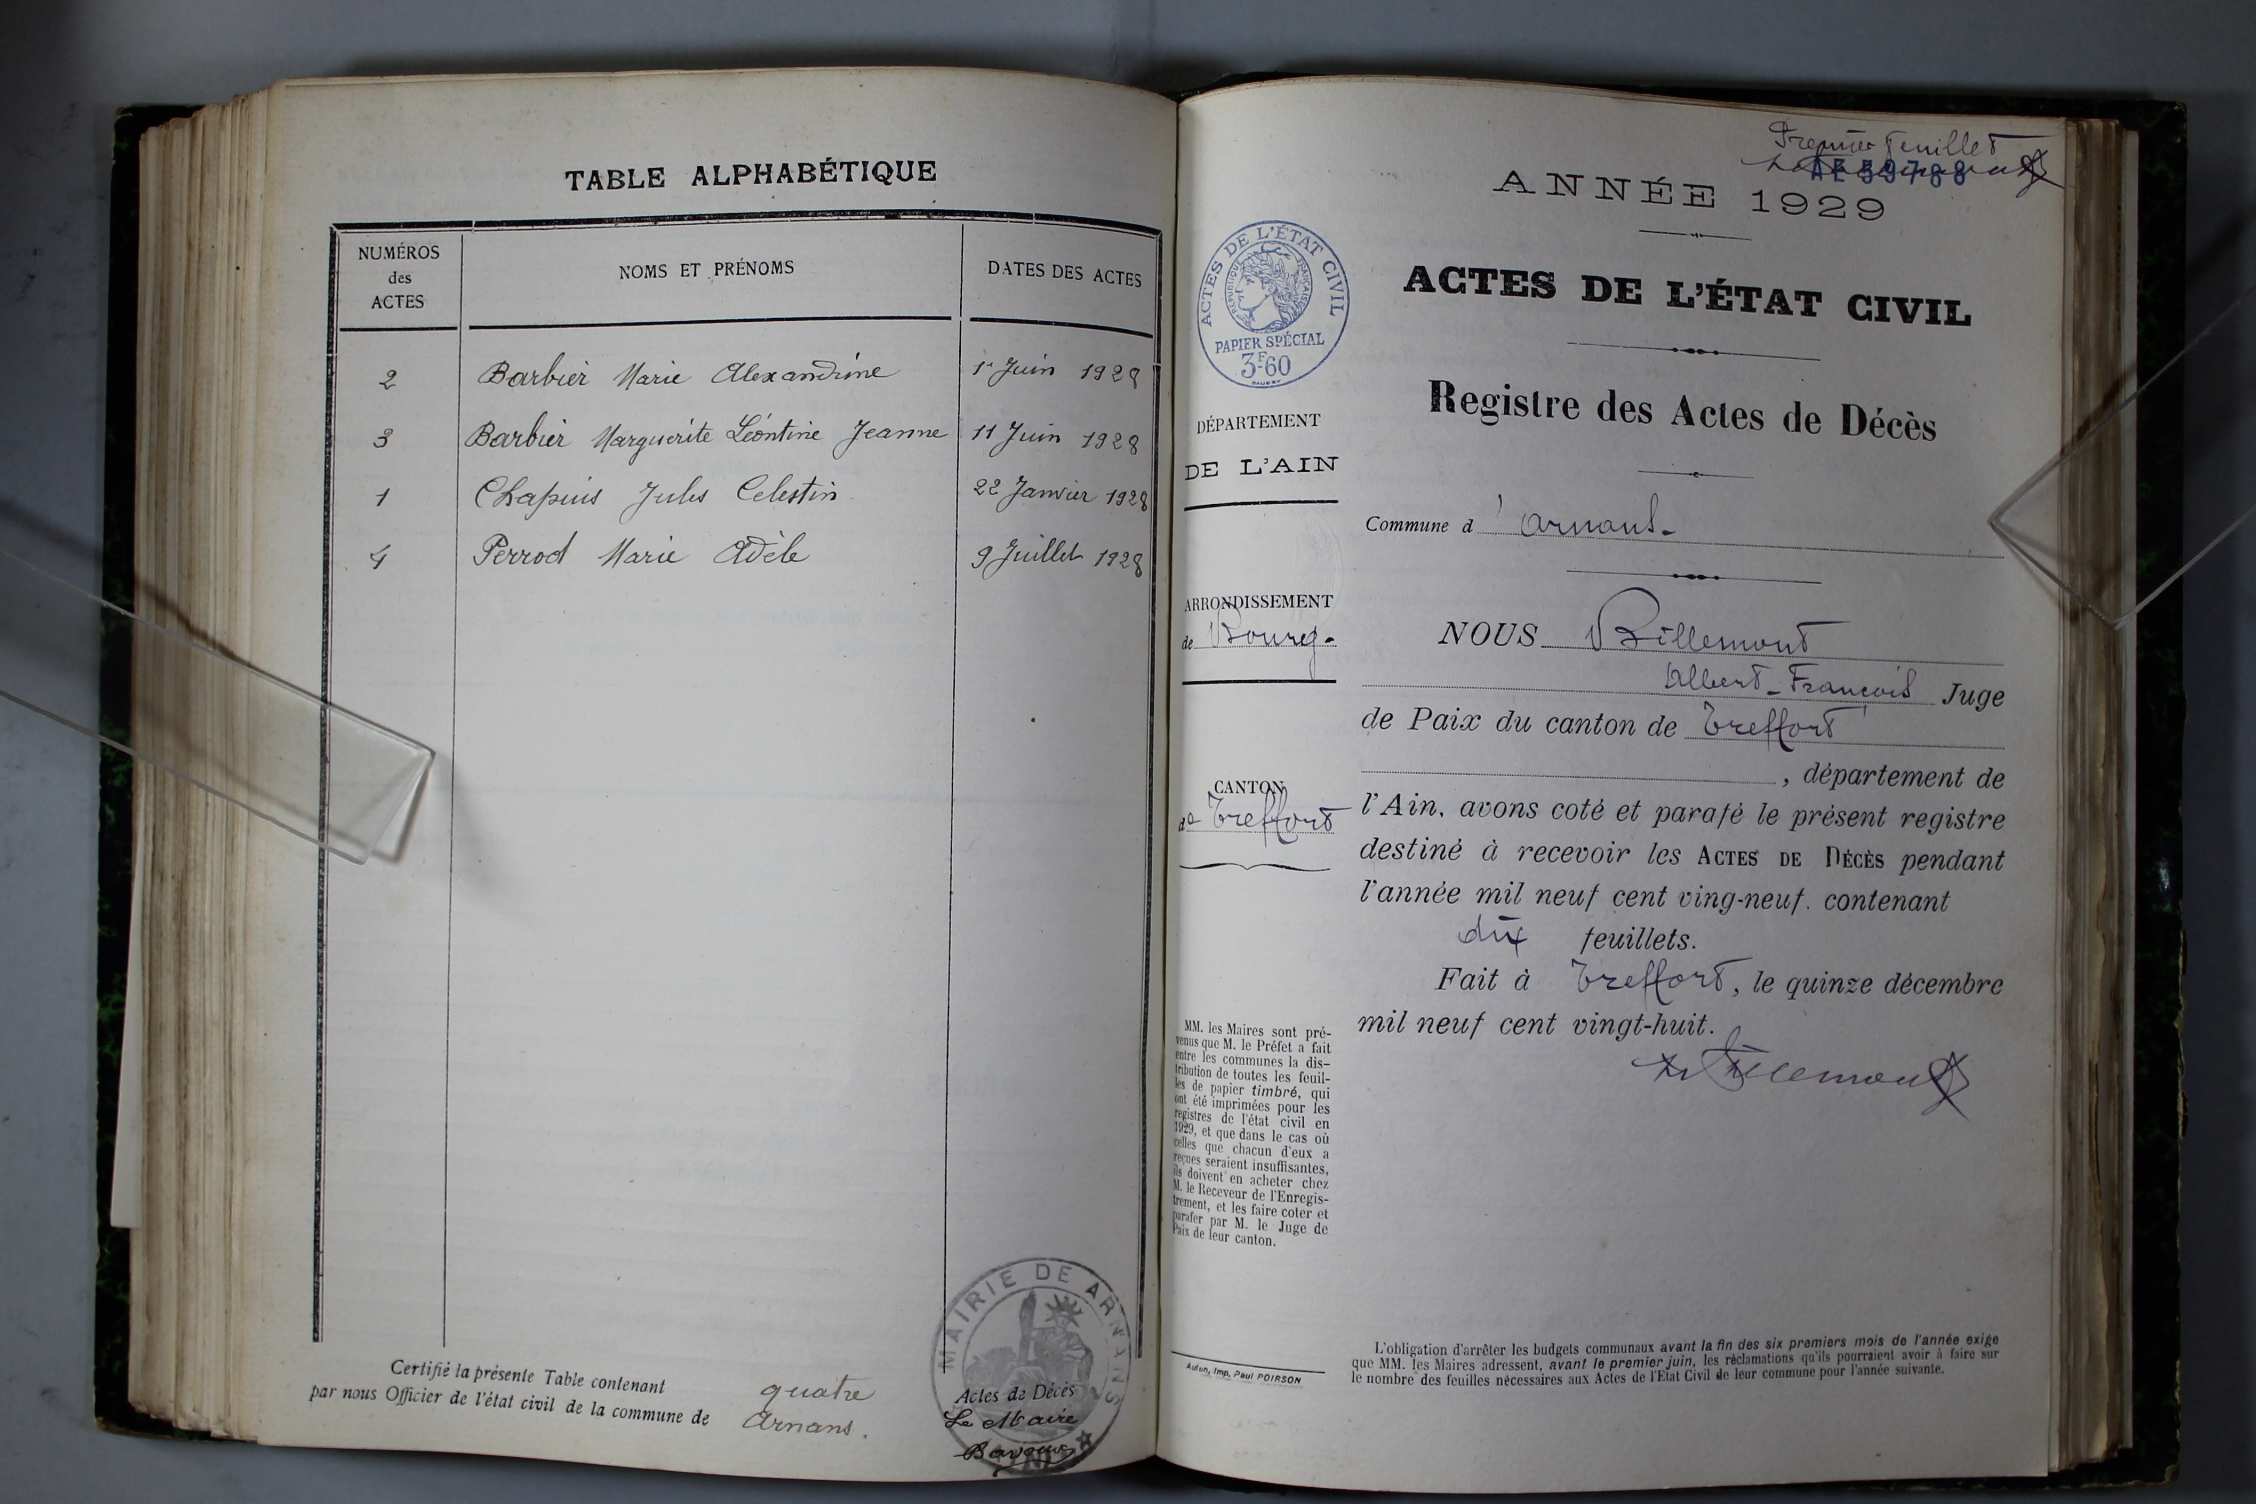 TABLE ALPHABÉTIQUE
NUMÉROS des ACTES
NOMS ET PRÉNOMS
DATES DES ACTES
2 Barbier Marie Alexandrine 1r Juin 1928
3 Barbier Marguerite Léontine Jeanne 11 Juin 1928
1 Chapuis Jules Celestin 22 Janvier 1928
4 Perrod Marie Adèle 9 Juillet 1928
Certifié la présente Table contenant quatre Actes de Décès
par nous Officier de l'état civil de la commune de Arnans.
Le Maire
MAIRIE DE ARNANS
Premier feuillet
AE 59788
ANNÉE 1929
ACTES DE L'ÉTAT CIVIL
RÉPUBLIQUE FRANÇAISE
PAPIER SPÉCIAL
3F60
ACTES DE L'ÉTAT CIVIL
Registre des Actes de Décès
DÉPARTEMENT
DE L'AIN
Commune d'Arnans-
ARRONDISSEMENT
de Bourg-
CANTON
de Treffort
NOUS Billemont
Albert-François Juge
de Paix du canton de Treffort
, département de
l'Ain, avons coté et parafé le présent registre
destiné à recevoir les ACTES DE DÉCÈS pendant
l'année mil neuf cent ving-neuf. contenant
dix feuillets.
Fait à Treffort, le quinze décembre
mil neuf cent vingt-huit.
Billemont
MM. les Maires sont pré-
venus que M. le Préfet a fait
entre les communes la dis-
tribution de toutes les feuil-
les de papier timbré, qui
ont été imprimées pour les
registres de l'état civil en
1929, et que dans le cas où
celles que chacun d'eux a
reçues seraient insuffisantes,
ils doivent en acheter chez
M. le Receveur de l'Enregis-
trement, et les faire coter et
parafer par M. le Juge de
Paix de leur canton.
Autun, Imp. Paul POIRSON
L'obligation d'arrêter les budgets communaux avant la fin des six premiers mois de l'année exige
que MM. les Maires adressent, avant le premier juin, les réclamations qu'ils pourraient avoir à faire sur
le nombre des feuilles nécessaires aux Actes de l'Etat Civil de leur commune pour l'année suivante.